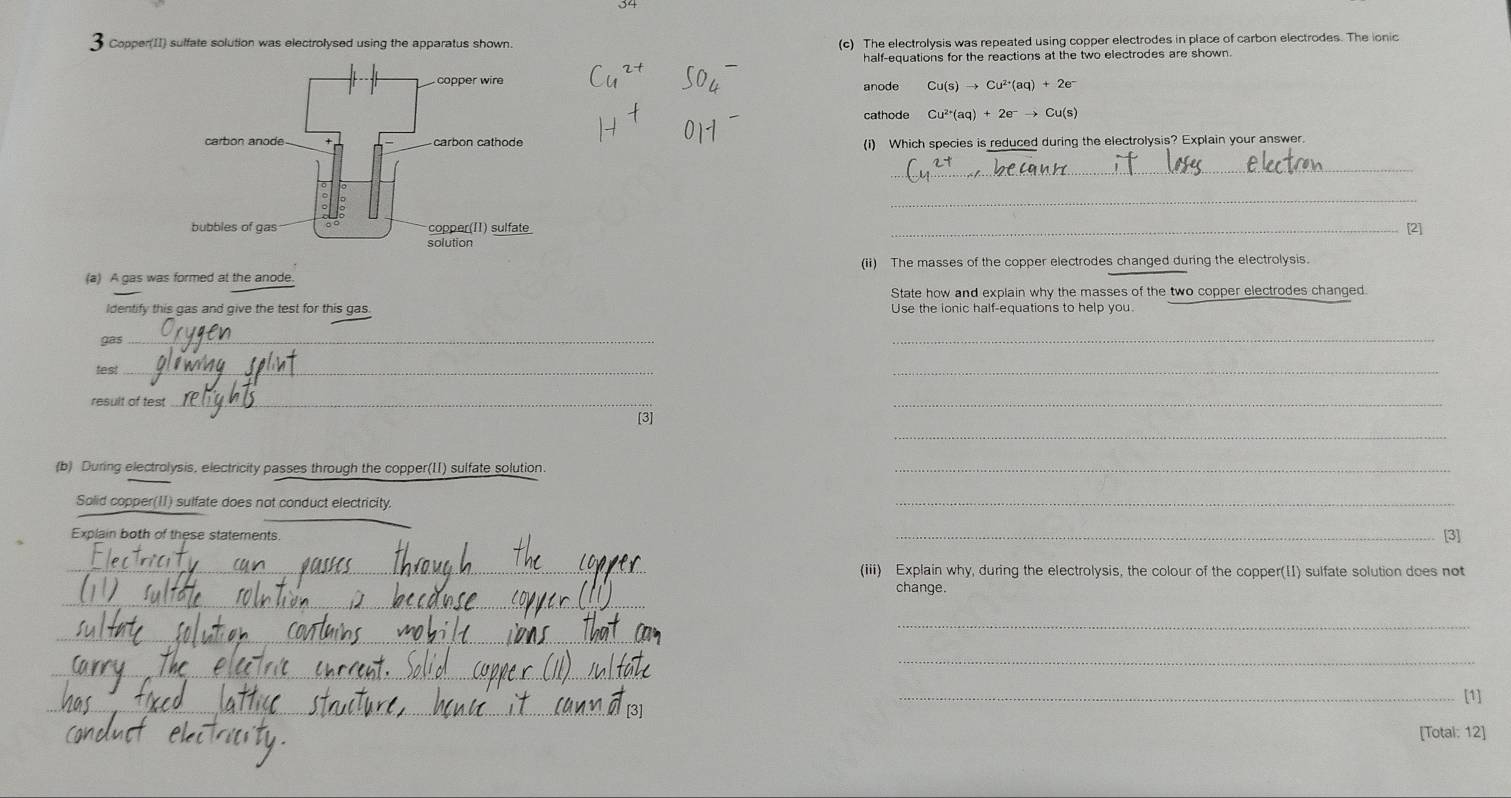 34
3 Copper(II) sulfate solution was electrolysed using the apparatus shown.
copper wire
carbon anode
+
−
carbon cathode
bubbles of gas
copper(II) sulfate
solution
Cu²⁺ SO₄⁻
H⁺ OH⁻
(a) A gas was formed at the anode.
Identify this gas and give the test for this gas.
gas Oxygen
test glowing splint
result of test relights
[3]
(b) During electrolysis, electricity passes through the copper(II) sulfate solution.
Solid copper(II) sulfate does not conduct electricity.
Explain both of these statements.
Electricity can passes through the copper
(II) sulfate solution is because copper (II)
sulfate solution contains mobile ions that can
carry the electric current. Solid copper (II) sulfate
has fixed lattice structure, hence it cannot [3]
conduct electricity.
(c) The electrolysis was repeated using copper electrodes in place of carbon electrodes. The ionic
half-equations for the reactions at the two electrodes are shown.
anode Cu(s) → Cu²⁺(aq) + 2e⁻
cathode Cu²⁺(aq) + 2e⁻ → Cu(s)
(i) Which species is reduced during the electrolysis? Explain your answer.
Cu²⁺, because it loses electron
[2]
(ii) The masses of the copper electrodes changed during the electrolysis.
State how and explain why the masses of the two copper electrodes changed.
Use the ionic half-equations to help you.
[3]
(iii) Explain why, during the electrolysis, the colour of the copper(II) sulfate solution does not
change.
[1]
[Total: 12]